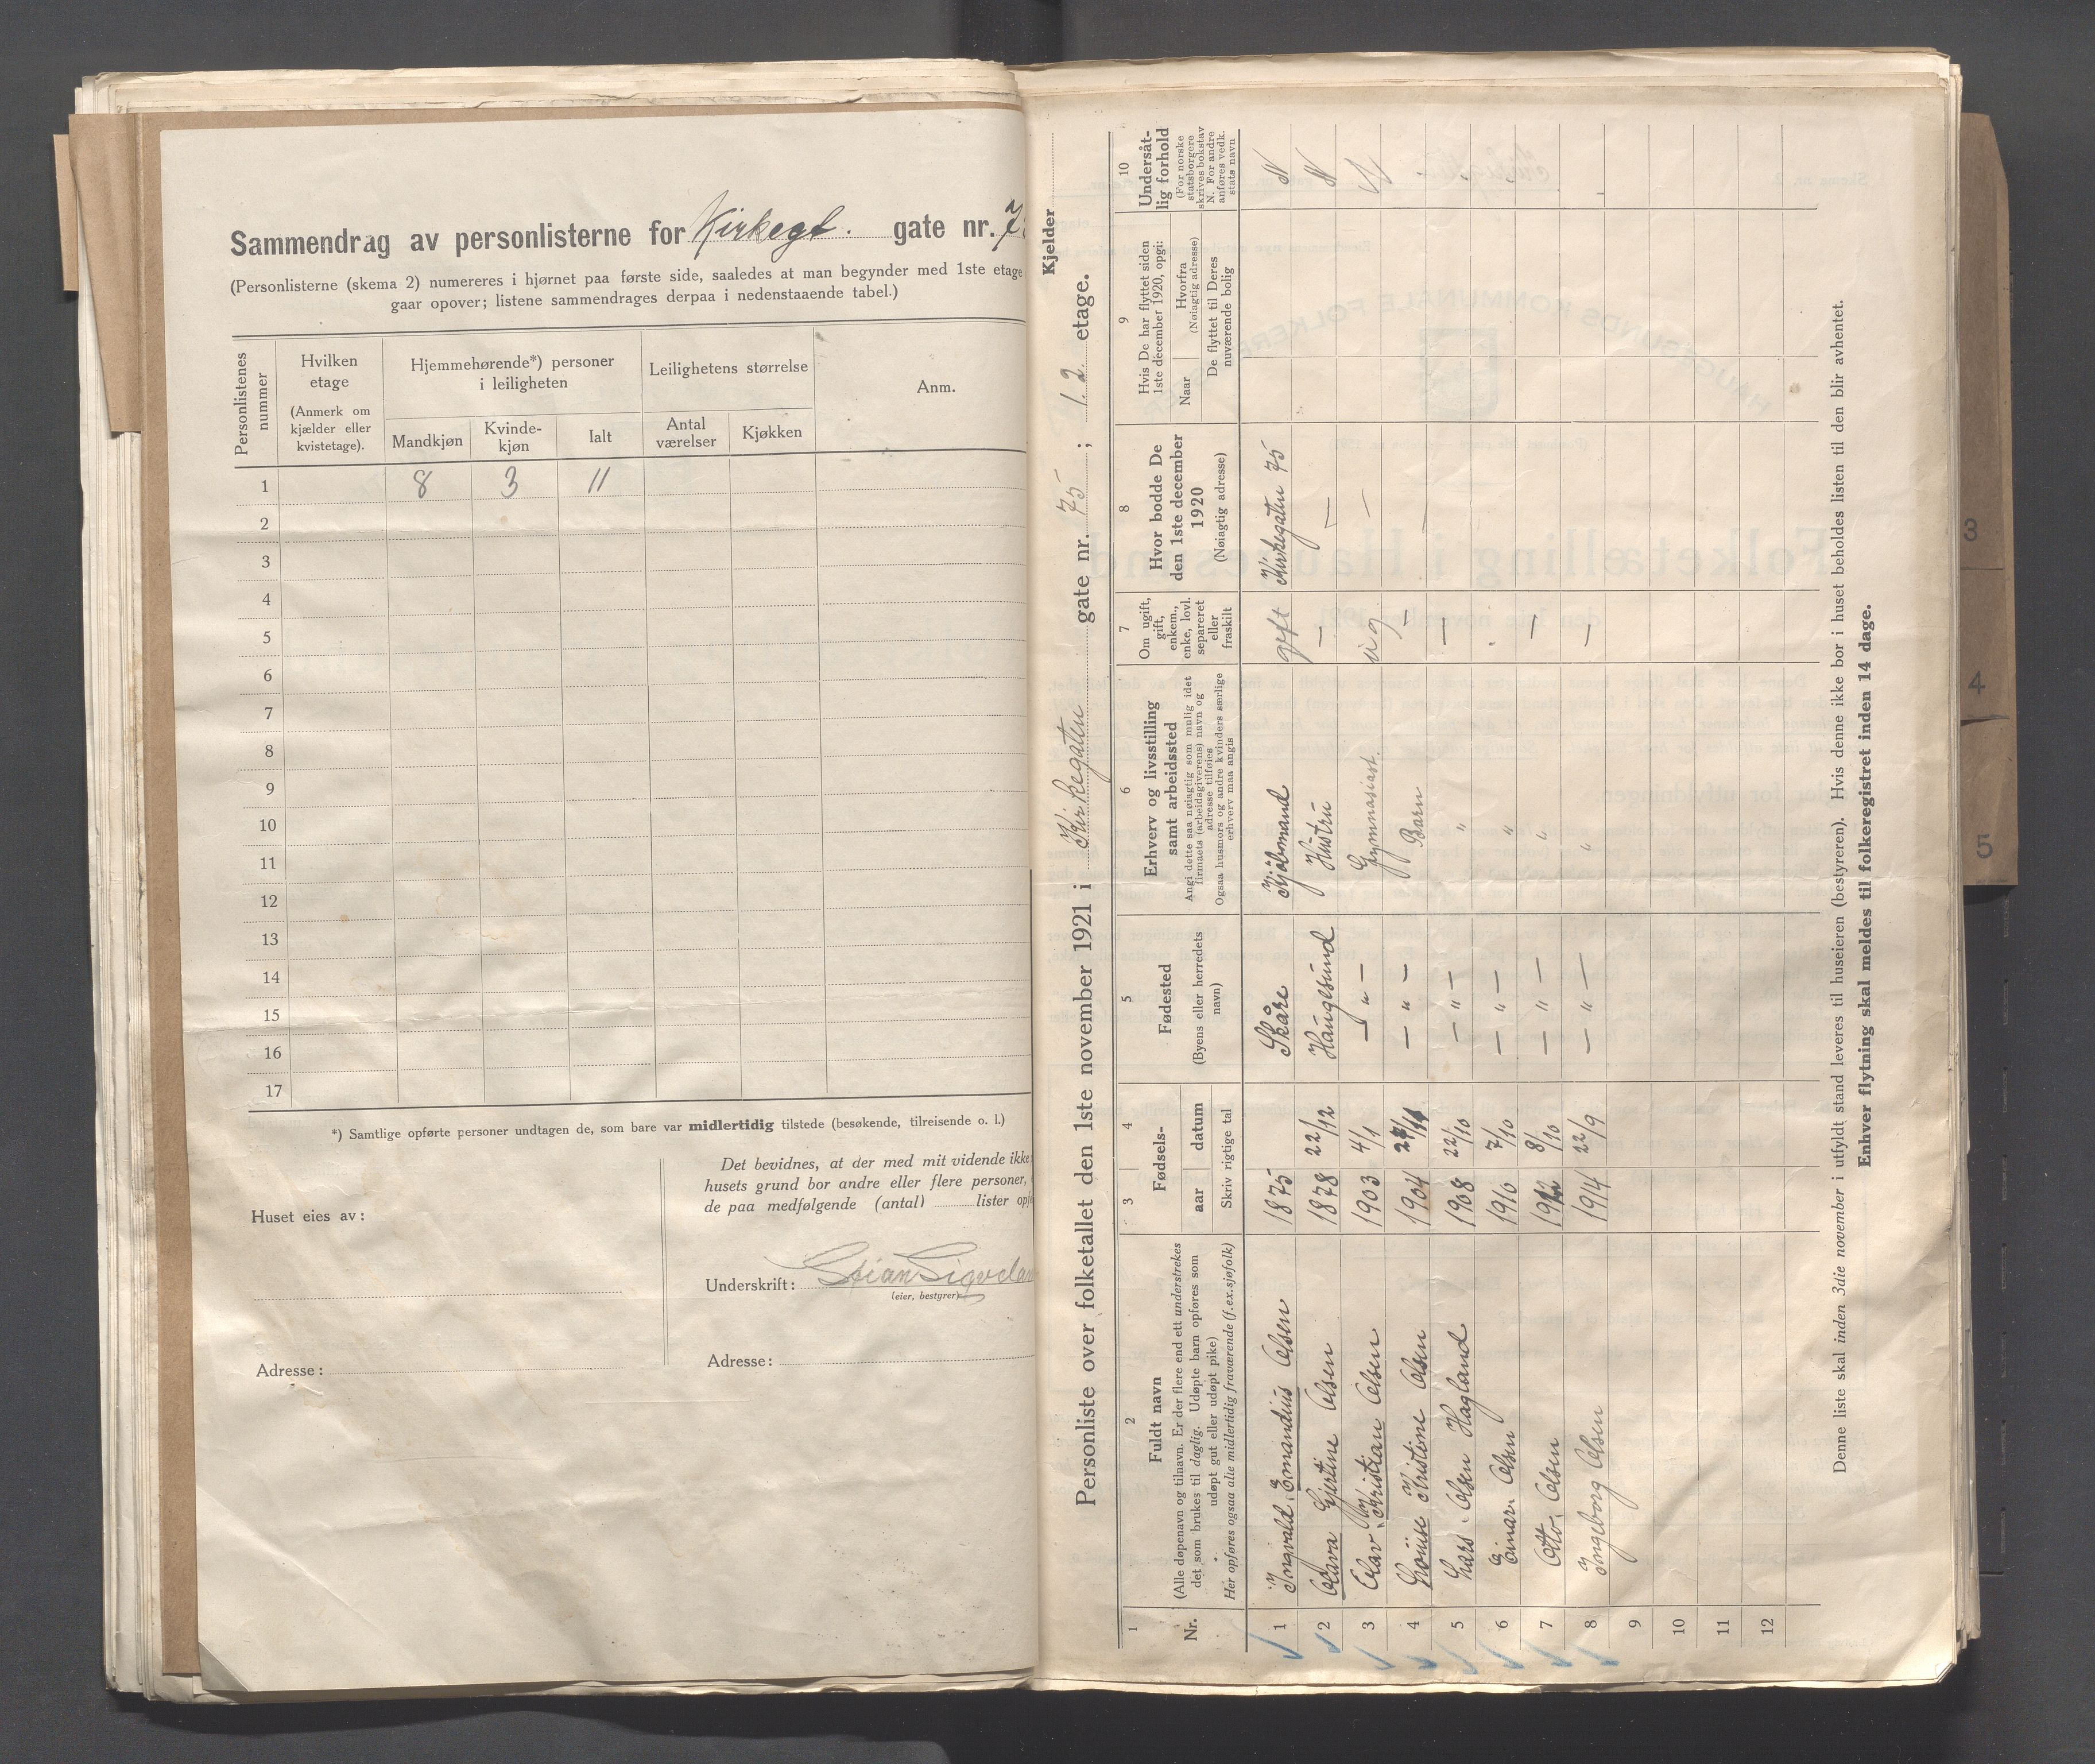 Sammendrag av personlisterne for Kirkegt. gate nr. 7
(Personlisterne (skema 2) numereres i hjørnet paa første side, saaledes at man begynder med 1ste etage
gaar opover; listene sammendrages derpaa i nedenstaaende tabel.)
Personlistenes nummer
Hvilken etage
(Anmerk om kjælder eller kvistetage).
Hjemmehørende*) personer i leiligheten
Mandkjøn
Kvinde-kjøn
Ialt
Leilighetens størrelse
Antal værelser
Kjøkken
Anm.
1 8 3 11
2
3
4
5
6
7
8
9
10
11
12
13
14
15
16
17
*) Samtlige opførte personer undtagen de, som bare var midlertidig tilstede (besøkende, tilreisende o. l.)
Det bevidnes, at der med mit vidende ikke
husets grund bor andre eller flere personer,
de paa medfølgende (antal) lister opf
Huset eies av:
Underskrift: Stian Sigvelan
(eier, bestyrer)
Adresse:
Adresse:
Kjelder
Personliste over folketallet den 1ste november 1921 i Kirkegaten gate nr. 75 ; 1. 2 etage.
1
Nr.
2
Fuldt navn
(Alle døpenavn og tilnavn. Er der flere end ett understrekes
det som brukes til daglig. Udøpte barn opføres som
udøpt gut eller udøpt pike)
Her opføres ogsaa alle midlertidig fraværende (f.ex. sjøfolk)
3 4
Fødsels-
aar datum
Skriv rigtige tal
5
Fødested
(Byens eller herredets navn)
6
Erhverv og livsstilling
samt arbeidssted
Angi dette saa nøiagtig som mulig idet
firmaets (arbeidsgiverens) navn og
adresse tilføies
Ogsaa husmors og andre kvinders særlige
erhverv maa angis
7
Om ugift,
gift,
enkem.,
enke, lovl.
separeret
eller
fraskilt
8
Hvor bodde De
den 1ste december
1920
(Nøiagtig adresse)
9
Hvis De har flyttet siden
1ste december 1920, opgi:
Naar
Hvorfra
(Nøiagtig adresse)
De flyttet til Deres
nuværende bolig
10
Undersåt-
lig forhold
(For norske
statsborgere
skrives bokstav
N. For andre
anføres vedk.
stats navn
1 Ingvald Emandius Olsen 1875 Skåre Kjöbmand gift Kirkegaten 75 N
2 Olava Gjertine Olsen 1878 22/12 Haugesund Hustru — — N
3 Olav Kristian Olsen 1903 4/1 — " — Gymnasiast. ug — N
4 Louise Kristine Olsen 1904 — " — Barn —
5 Lars Olsen Hagland 1908 22/10 — " — " —
6 Einar Olsen 1910 7/10 — " — "
7 Otto Olsen 8/10 — " — " —
8 Ingeborg Olsen 1914 22/9 — " — " —
9
10
11
12
Denne liste skal inden 3die november i utfyldt stand leveres til huseieren (bestyreren). Hvis denne ikke bor i huset beholdes listen til den blir avhentet.
Enhver flytning skal meldes til folkeregistret inden 14 dage.
3
4
5